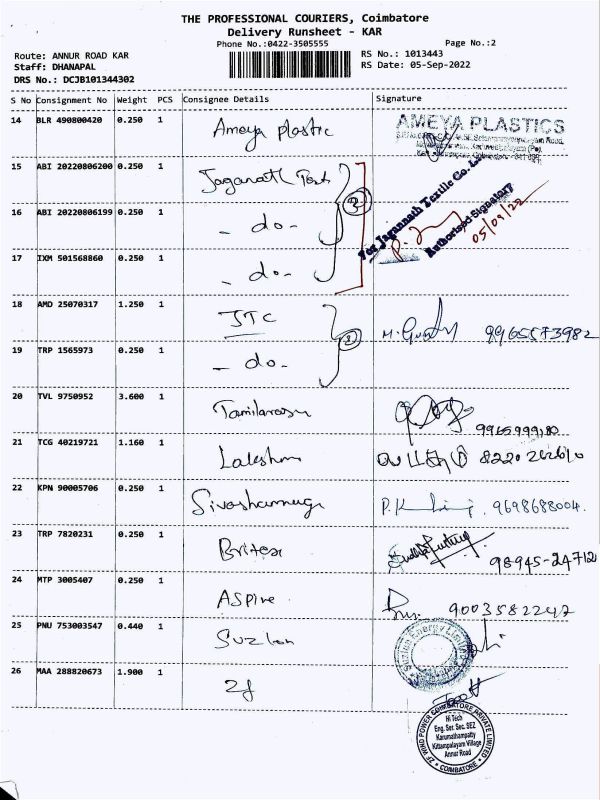 THE PROFESSIONAL COURIERS, Coimbatore
Delivery Runsheet - KAR
Phone No.:0422-3505555
Page No.:2
Route: ANNUR ROAD KAR
RS No.: 1013443
Staff: DHANAPAL
RS Date: 05-Sep-2022
DRS No.: DCJB101344302
S No Consignment No Weight PCS Consignee Details Signature
14 BLR 490800420 0.250 1 Ameya plastic
AMEYA PLASTICS
15 ABI 20220806200 0.250 1 Jaganath
For Jagannath Textile Co. Ltd
Authorised Signatory
05/09/22
16 ABI 20220806199 0.250 1 - do -
17 IXM 501568860 0.250 1 - do -
18 AMD 25070317 1.250 1 JTC 9965573982
19 TRP 1565973 0.250 1 - do -
20 TVL 9750952 3.600 1 Tamilarasu
21 TCG 40219721 1.160 1 Lakshmi
22 KPN 90005706 0.250 1 Sivashanmuga 9698688004.
23 TRP 7820231 0.250 1 Britex 98945-24712
24 MTP 3005407 0.250 1 Aspire 9003582242
25 PNU 753003547 0.440 1 Suzlon
Suzlon Energy Limited
26 MAA 288820673 1.900 1 Zf
ZF WIND POWER COIMBATORE PRIVATE LIMITED
Hi Tech
Eng. Ser. Sec. SEZ
Karumathampatty
Kittampalayam Village
Annur Road
COIMBATORE